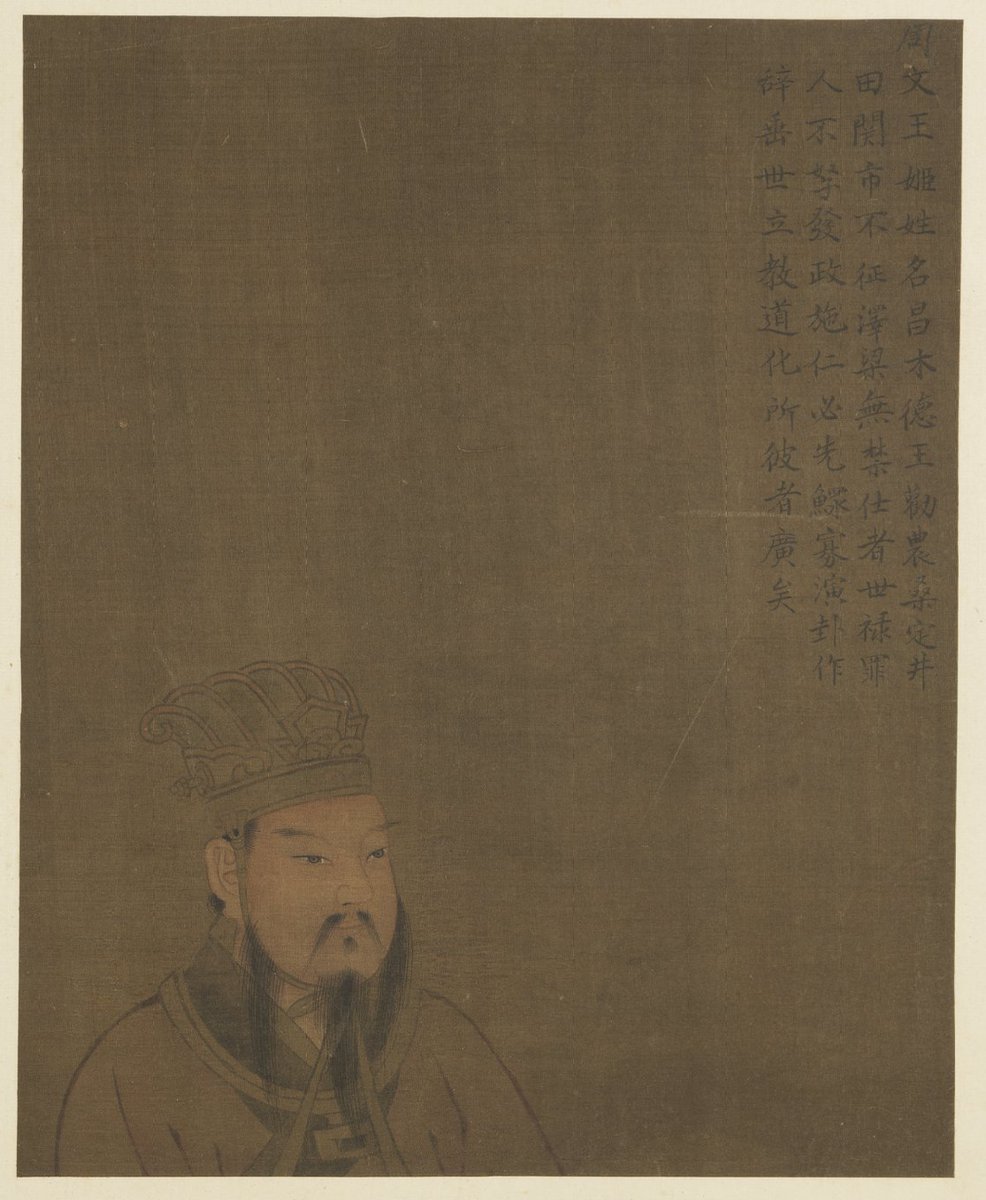 周文王姬姓名昌木德王勸農桑定井
田関市不征澤梁無禁仕者世禄罪
人不孥發政施仁必先鰥寡演卦作
辞垂世立教道化所彼者廣矣